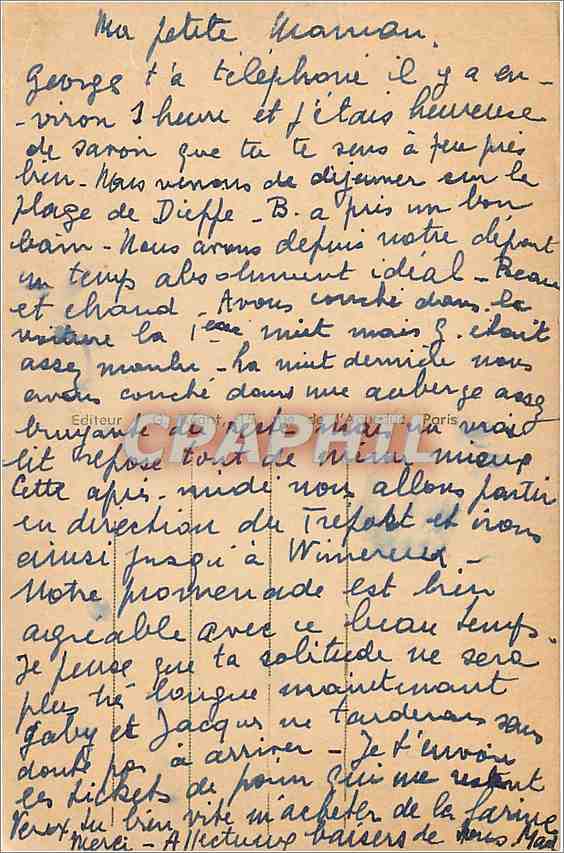 Ma petite Maman.
George t'a téléphoné il y a en-
-viron 1 heure et j'étais heureuse
de savoir que tu te sens à peu près
bien - Nous venons de déjeuner sur la
plage de Dieppe - B. a pris un bon
bain - Nous avons depuis notre départ
un temps absolument idéal - Beau
et chaud - Avons couché dans la
voiture la 1ère nuit mais G. était
assez moulu - La nuit dernière nous
avons couché dans une auberge assez
Editeur Paris
CPARHIL
bruyante du reste mais un vrai
lit repose tout de même mieux
Cette après-midi nous allons partir
en direction du Treport et irons
ainsi jusqu'à Wimereux -
Notre promenade est bien
agréable avec ce beau temps.
Je pense que ta solitude ne sera
plus très longue maintenant
Gaby et Jacques ne tarderons sans
doute pas à arriver - Je t'envoie
les tickets de pain qui me restent
Veux tu bien vite m'acheter de la farine
Merci - Affectueux baisers de nous Mad